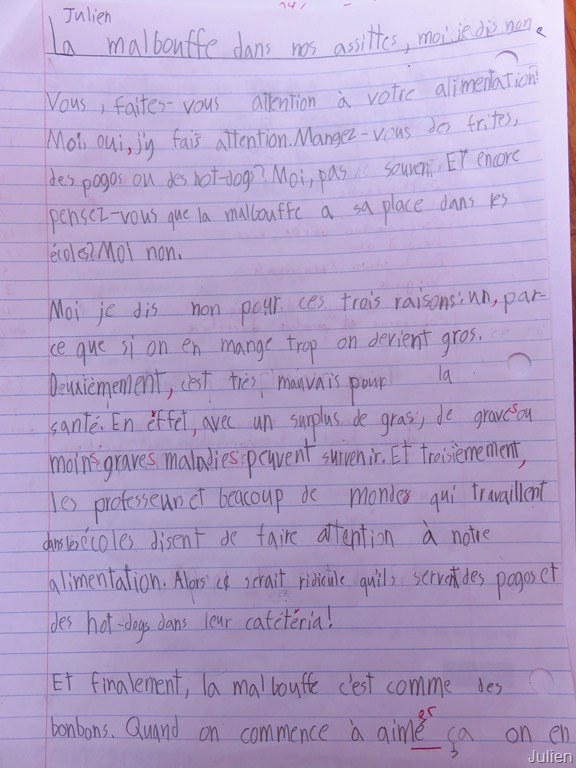 Julien
La malbouffe dans nos assittes, moi je dis non.
Vous, faites-vous attention à votre alimentation?
Moi, oui, j'y fais attention. Mangez-vous des frites,
des pogos ou des hot-dogs? Moi, pas souvent. Et encore
pensez-vous que la malbouffe a sa place dans les
écoles? Moi non.
Moi je dis non pour ces trois raisons: un, par-
ce que si on en mange trop on devient gros.
Deuxièmement, c'est très mauvais pour la
santé. En effet, avec un surplus de gras, de graves ou
moins graves maladies peuvent survenir. Et troisièmement,
les professeurs et beacoup de mondes qui travaillent
dans les écoles disent de faire attention à notre
alimentation. Alors ce serait ridicule qu'ils servent des pogos et
des hot-dogs dans leur cafétéria!
Et finalement, la malbouffe c'est comme des
bonbons. Quand on commence à aimer ça on en
Julien